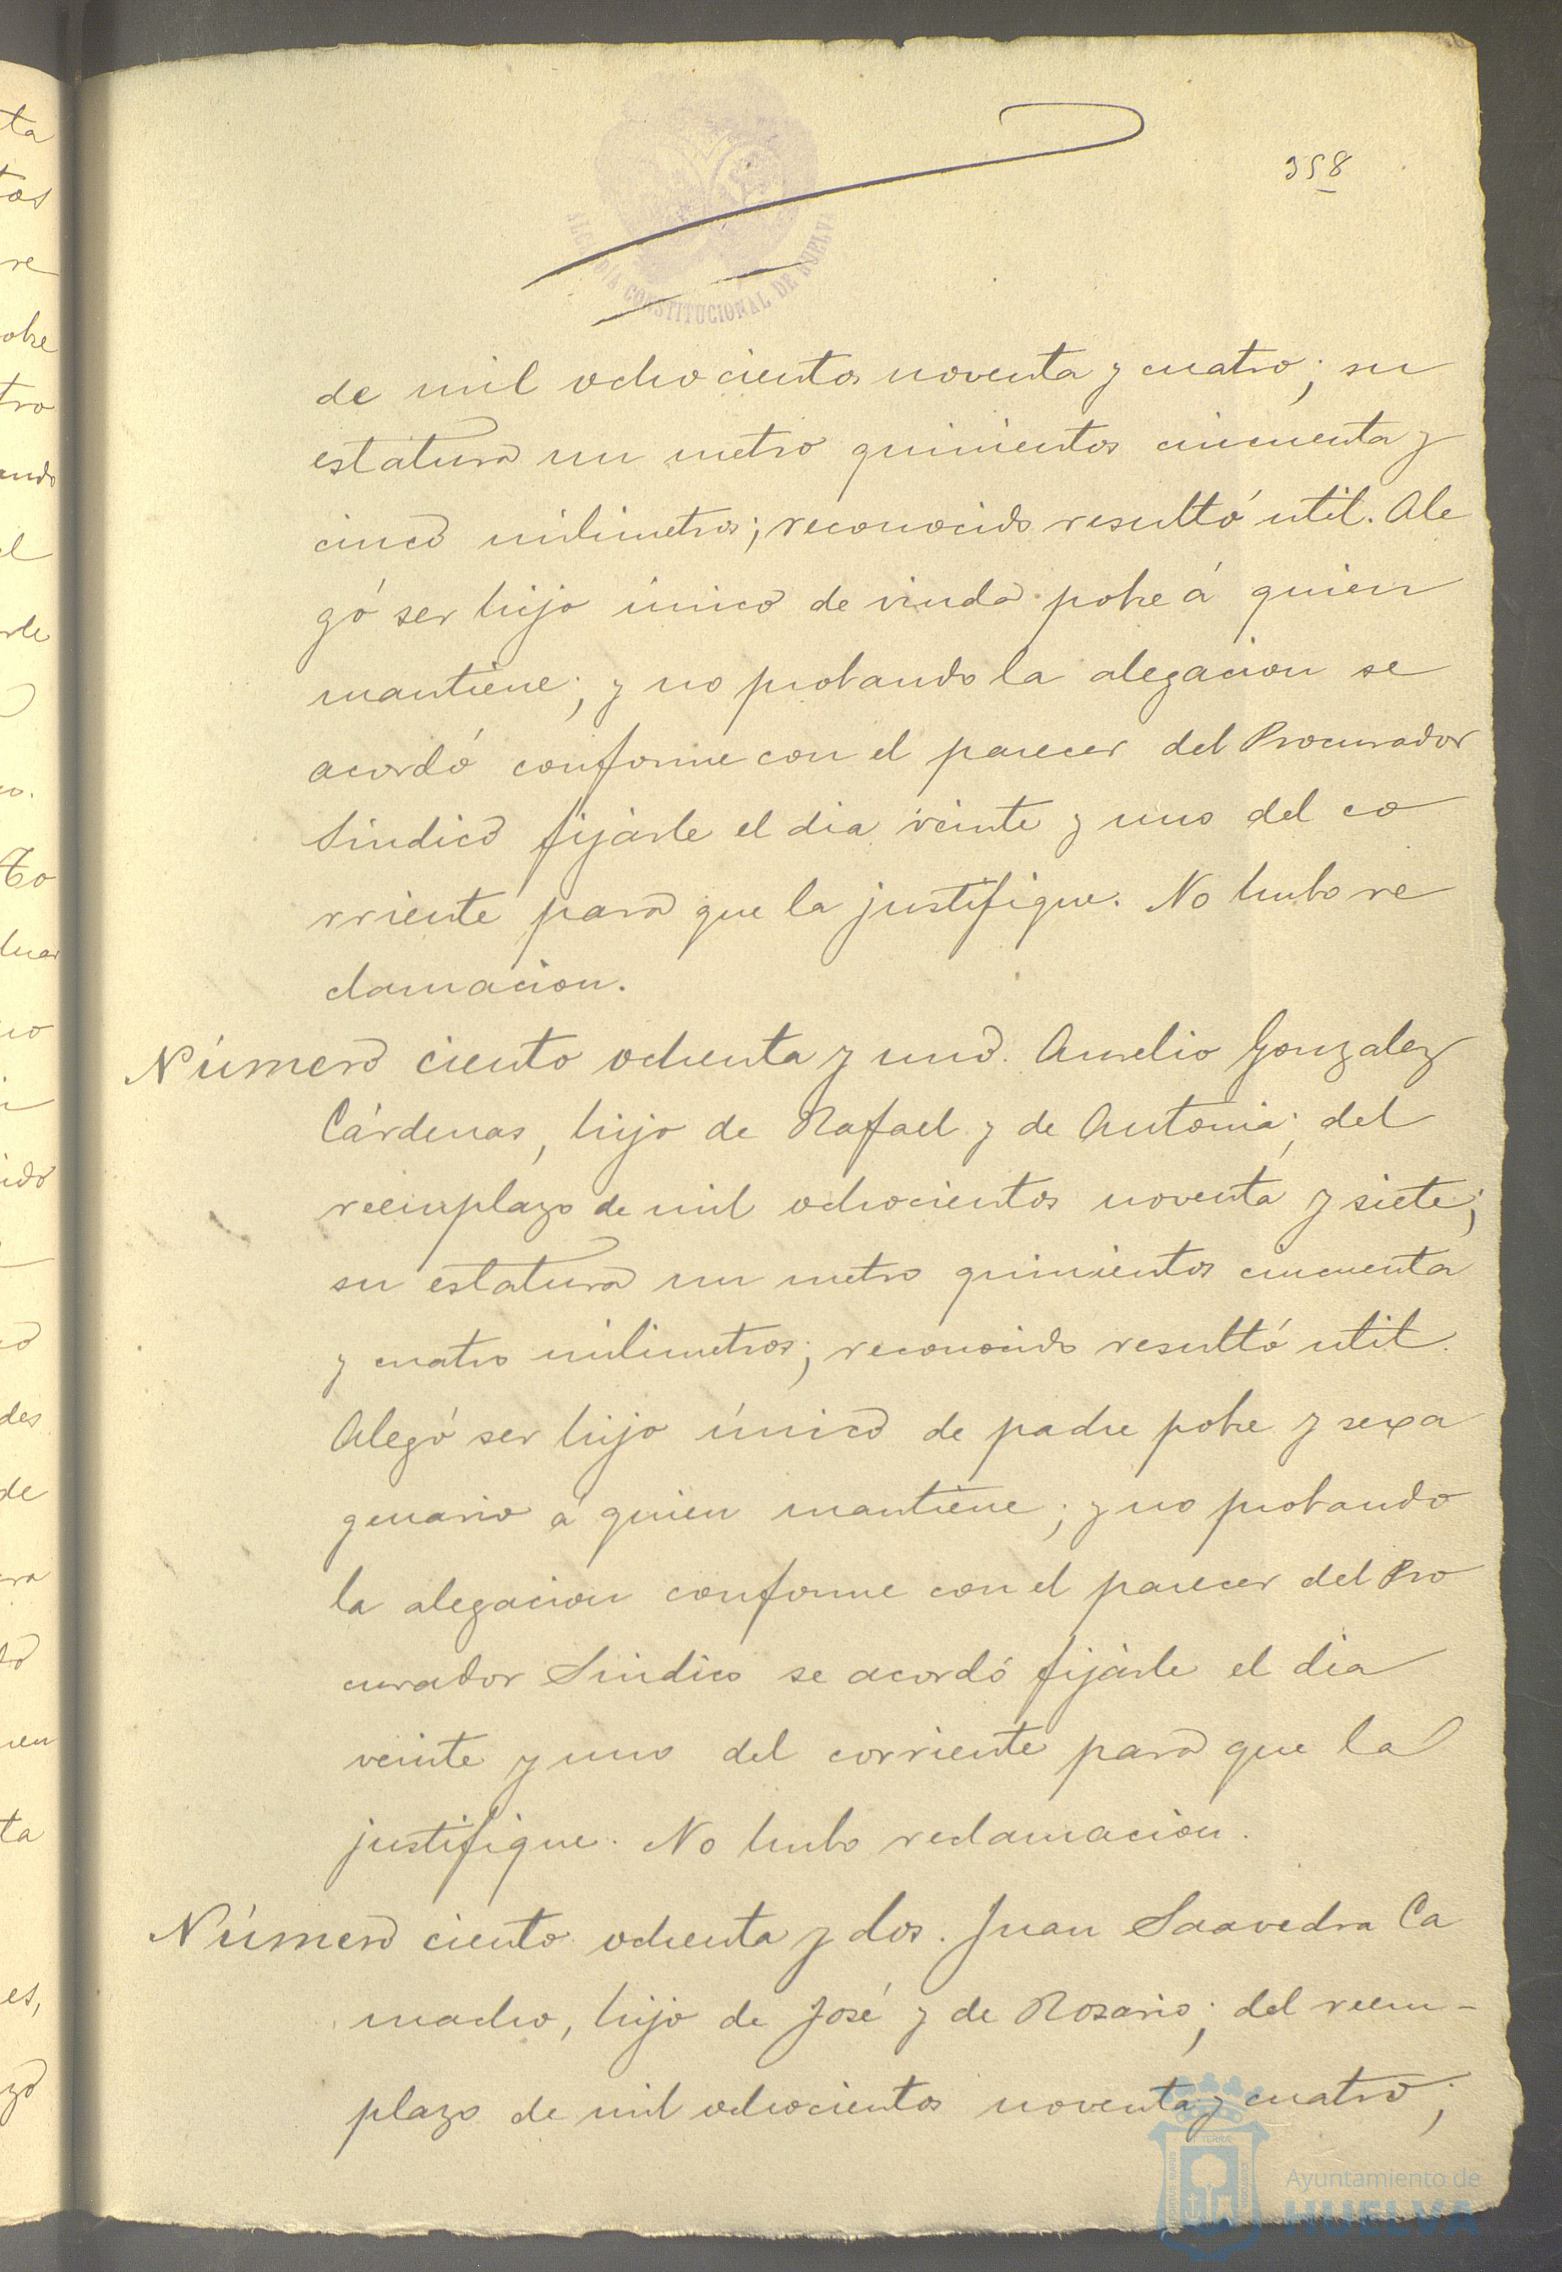 358
ALCALDIA CONSTITUCIONAL DE HUELVA
de mil ochocientos noventa y cuatro; su
estatura un metro quinientos cincuenta y
cinco milimetros; reconocido resultó util. Ale
gó ser hijo único de viuda pobre á quien
mantiene; y no probando la alegacion se
acordó conforme con el parecer del Procurador
Sindico fijárle el dia veinte y uno del co
rriente para que la justifique. No hubo re
clamacion.
Número ciento ochenta y uno. Aurelio Gonzalez
Cárdenas, hijo de Rafael y de Antonia; del
reemplazo de mil ochocientos noventa y siete;
su estatura un metro quinientos cincuenta
y cuatro milimetros; reconocido resultó util.
Alegó ser hijo único de padre pobre y sexa
genario á quien mantiene; y no probando
la alegacion conforme con el parecer del Pro
curador Sindico se acordó fijárle el dia
veinte y uno del corriente para que la
justifique. No hubo reclamacion.
Número ciento ochenta y dos. Juan Saavedra Ca
macho, hijo de José y de Rosario; del reem-
plazo de mil ochocientos noventa y cuatro;
Ayuntamiento de
HUELVA